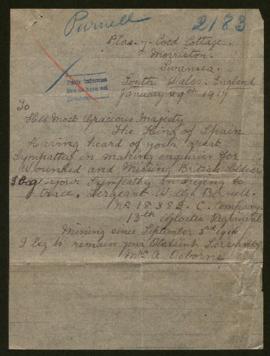 Purnell
2183
Plas-y-Coed Cottage.
Morriston.
Swansea.
South Wales. England
January 29th 1917
To
His Most Gracious Majesty
The King of Spain
Having heard of your great
Sympathy in making enquiries for
Wounded and Missing British Soldiers
I Beg your Sympathy in trying to
trace, Sergeant W. J. Purnell.
No 18382. C. Company
13th Gloster Regiment
Missing since September 3rd 1916
I beg to remain your Obedient Servant
Mrs A. Osborne